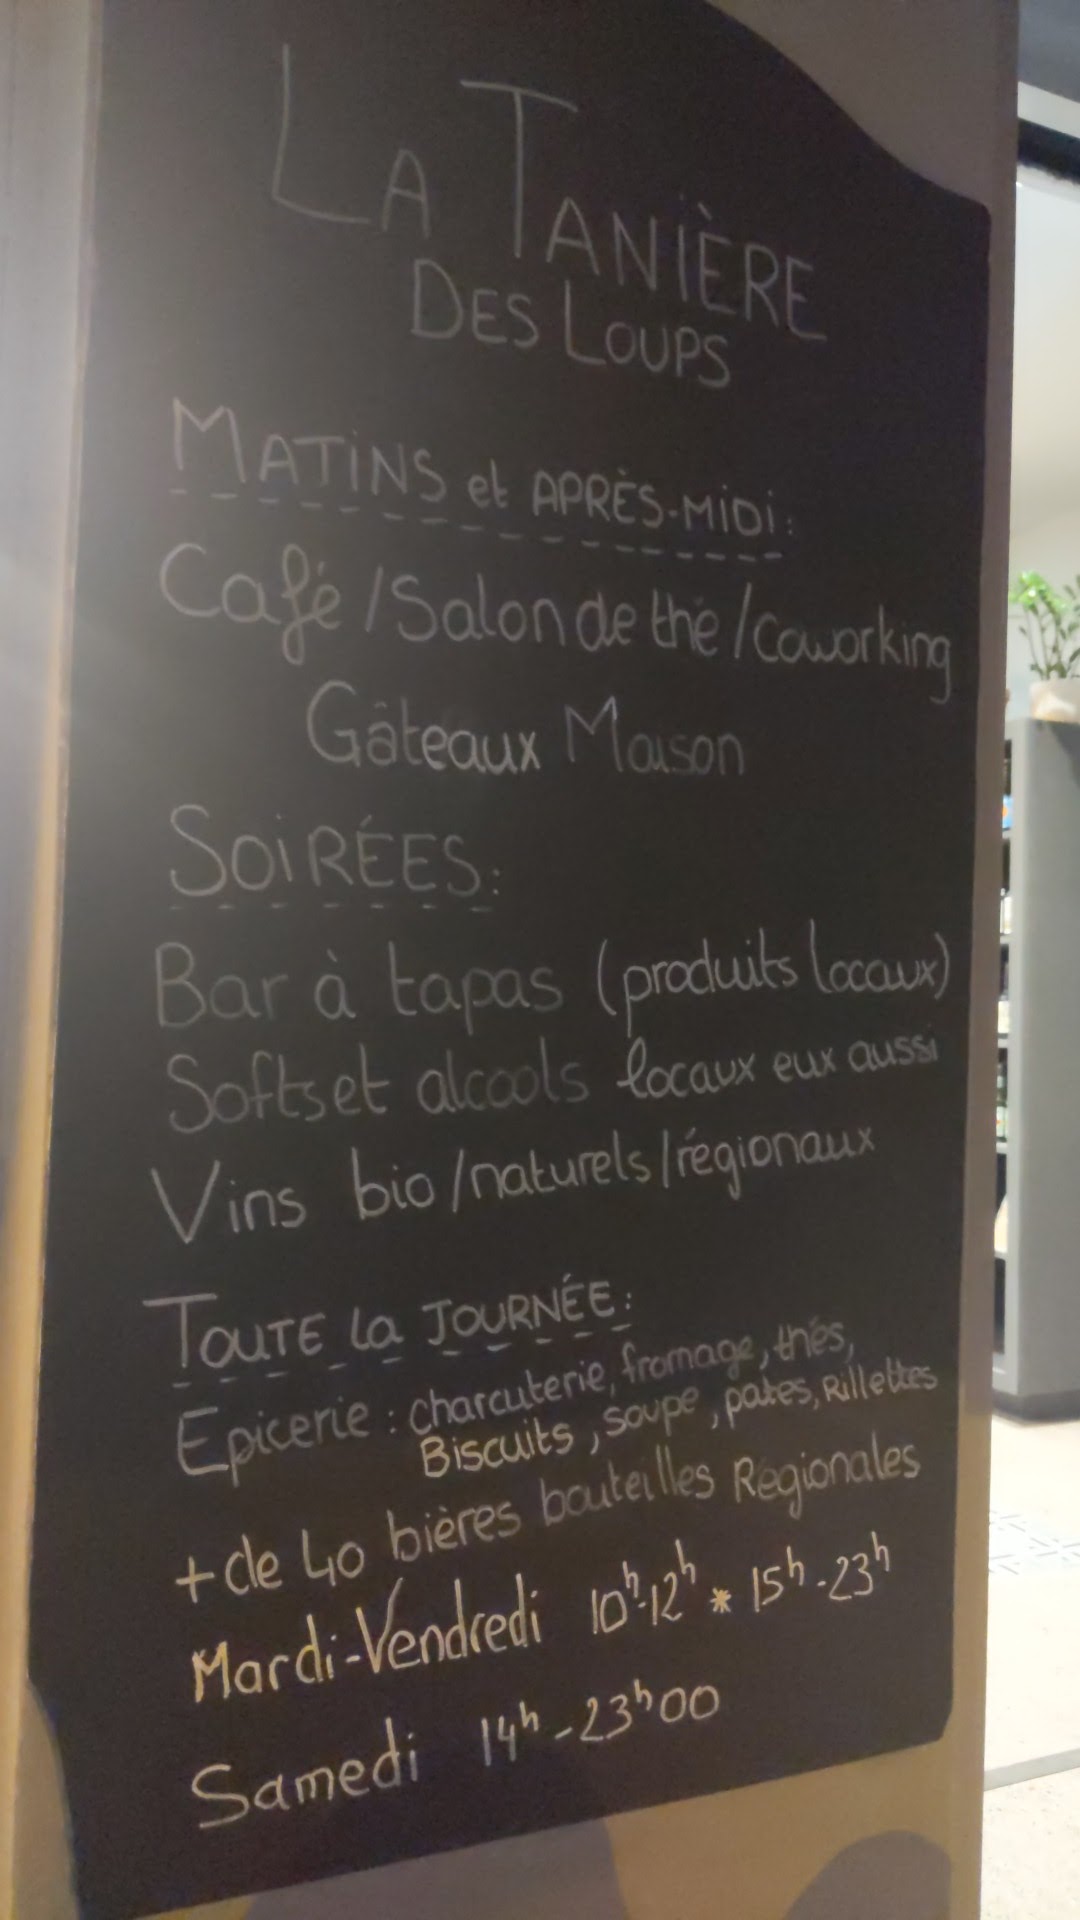 LA TANIÈRE
DES LOUPS
MATINS et APRÈS-MIDI:
Café / Salon de thé / coworking
Gâteaux Maison
SOIRÉES:
Bar à tapas (produits locaux)
Softs et alcools locaux eux aussi
Vins bio / naturels / régionaux
TOUTE La JOURNÉE:
Epicerie : charcuterie, fromage, thés,
Biscuits, soupe, pates, Rillettes
+ de 40 bières bouteilles Régionales
Mardi-Vendredi 10h-12h * 15h-23h
Samedi 14h-23h00